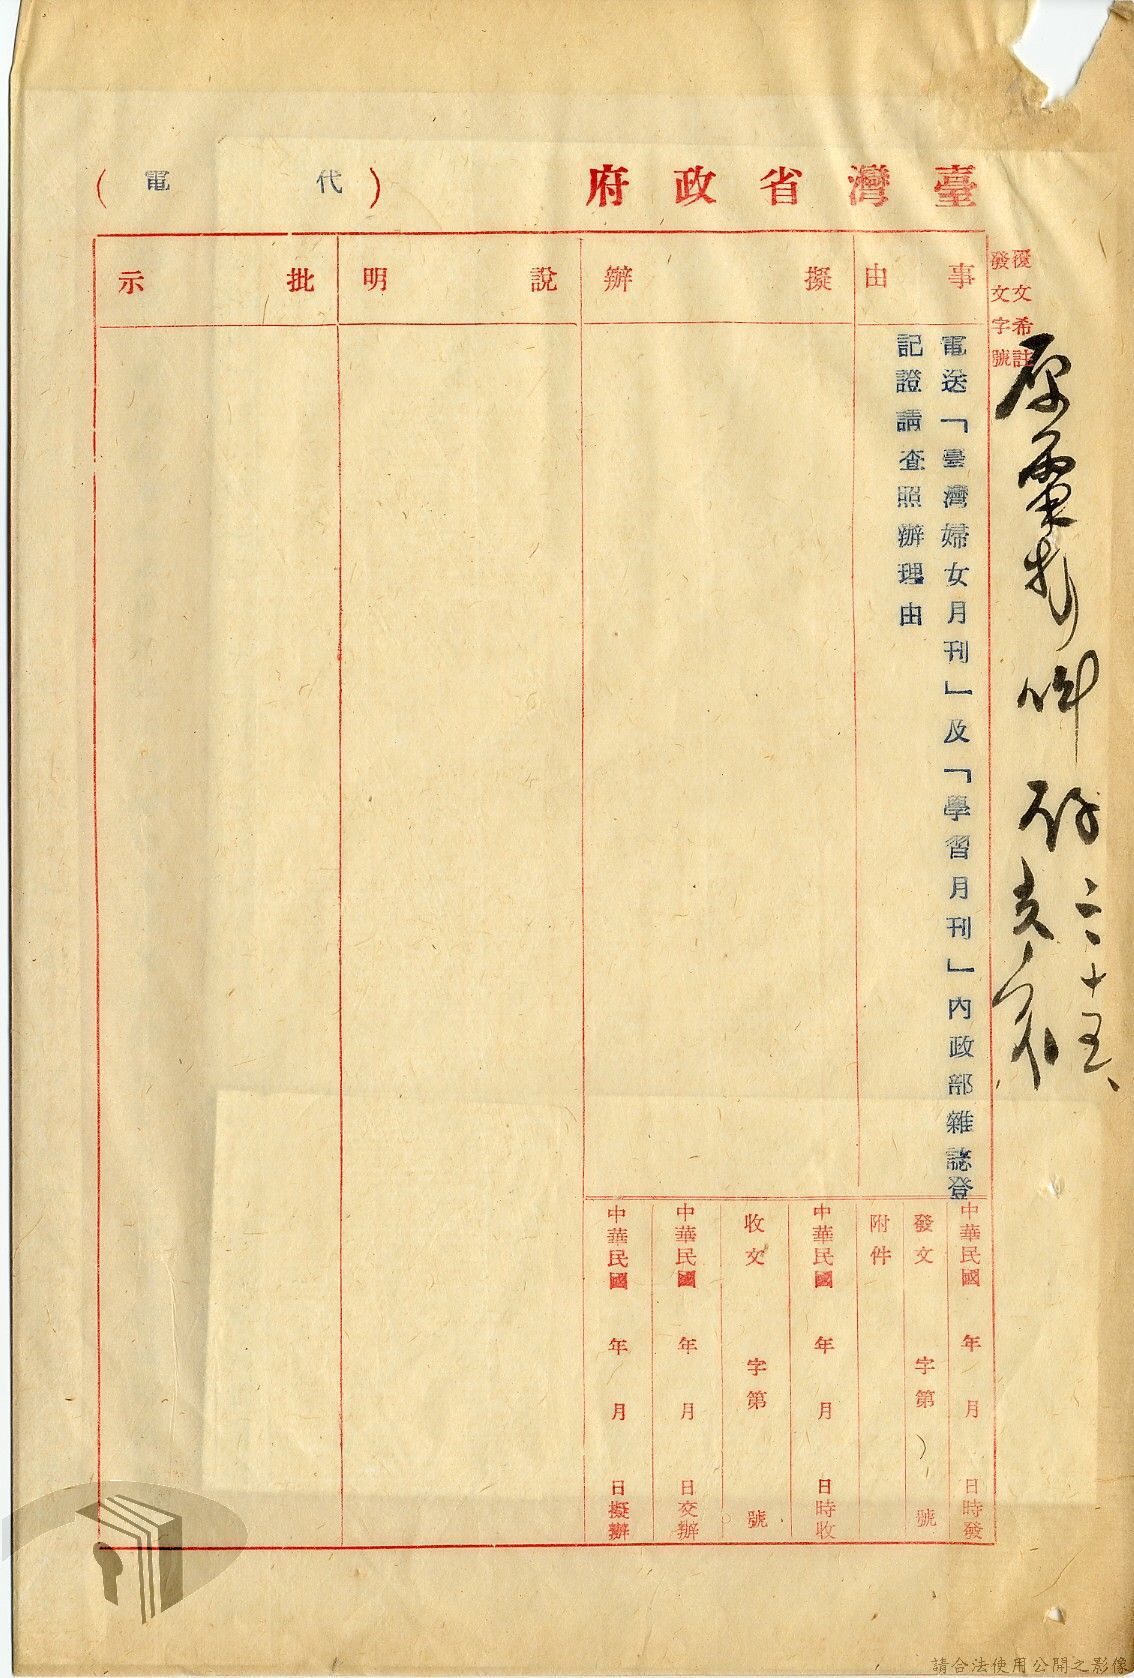 臺灣省政府
(代電)
復文希註
發文字號
事由
擬辦
說明
批示
電送「臺灣婦女月刊」及「學習月刊」內政部雜誌登
記證請查照辦理由
中華民國 年 月 日時發
發文 字第 號
附件
中華民國 年 月 日時收
收文 字第 號
中華民國 年 月 日交辦
中華民國 年 月 日擬辦
二、十五、
請合法使用公開之影像